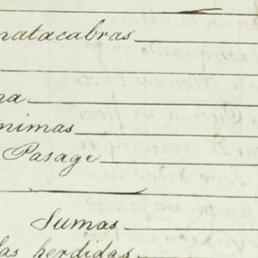 matacabras
na
nimas
Pasage
Sumas
las perdidas